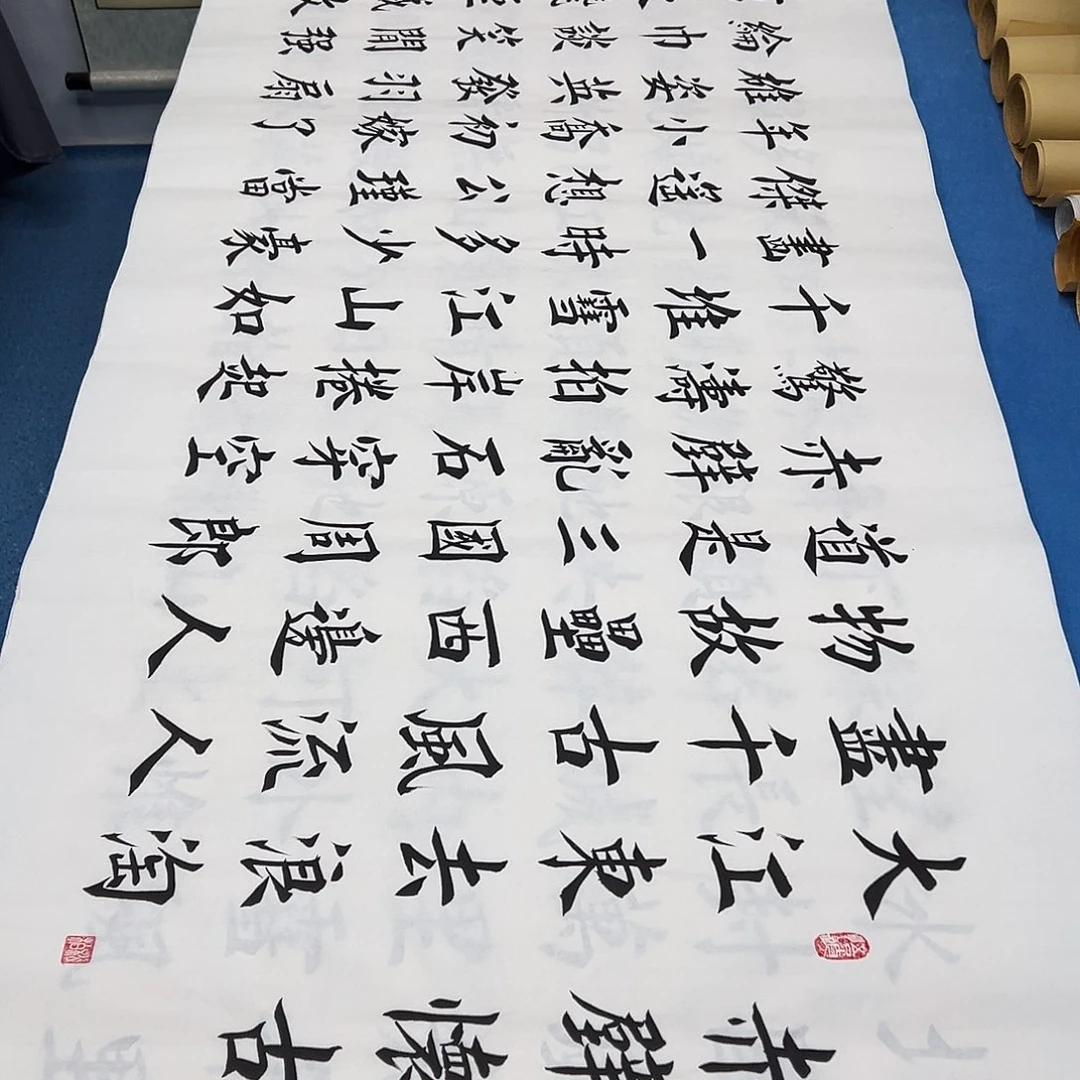 赤壁懷古
大江東去浪淘
盡千古風流人
物故壘西邊人
道是三國周郎
赤壁亂石穿空
驚濤拍岸捲起
千堆雪江山如
畫一時多少豪
傑遙想公瑾當
年小喬初嫁了
雄姿英發羽扇
綸巾談笑間强